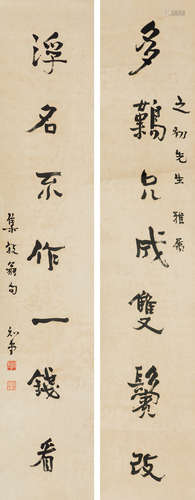 之初先生雅屬
多難只成雙鬢改
浮名不作一錢看
集放翁句 知堂